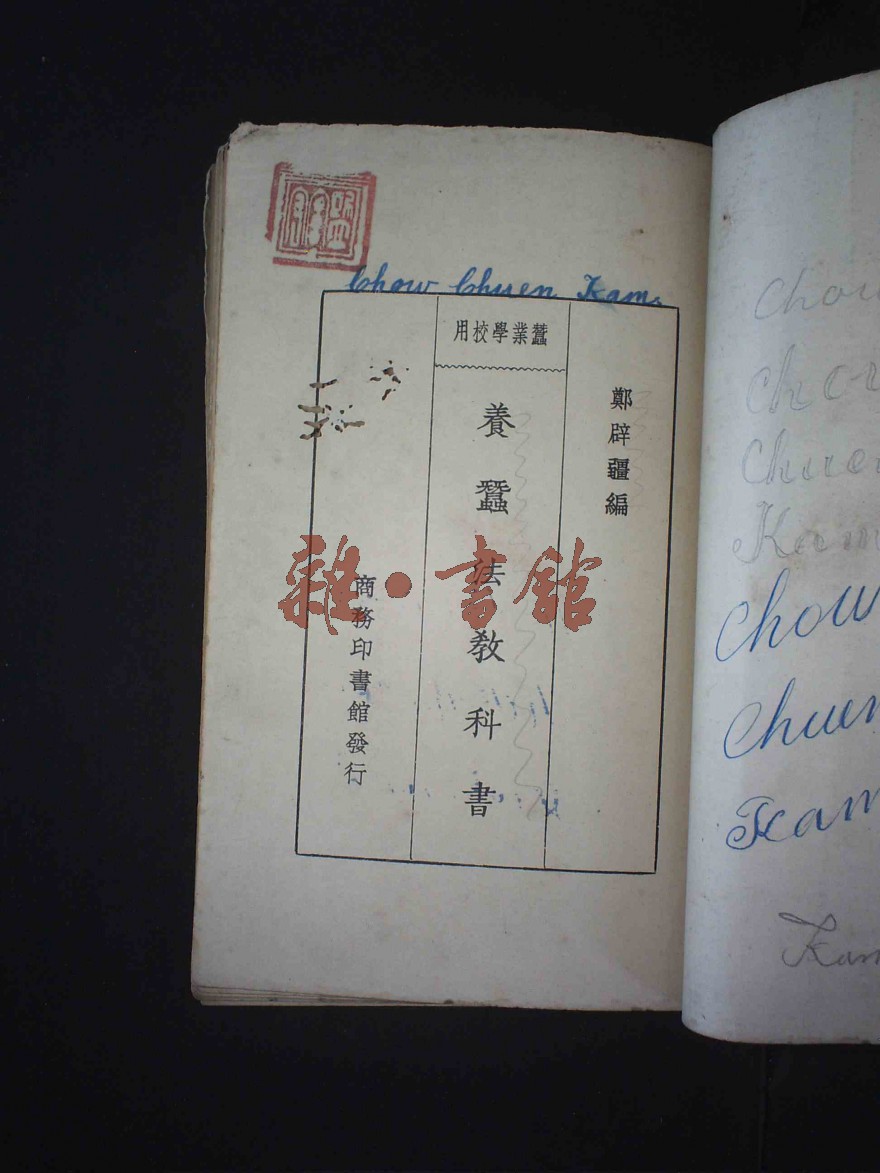 Chow Chuen Kam.
蠶業學校用
鄭辟疆編
養蠶法教科書
商務印書館發行
雜·書館
Chow
Chuen
Kam
Chow
Chuen
Kam
Kam